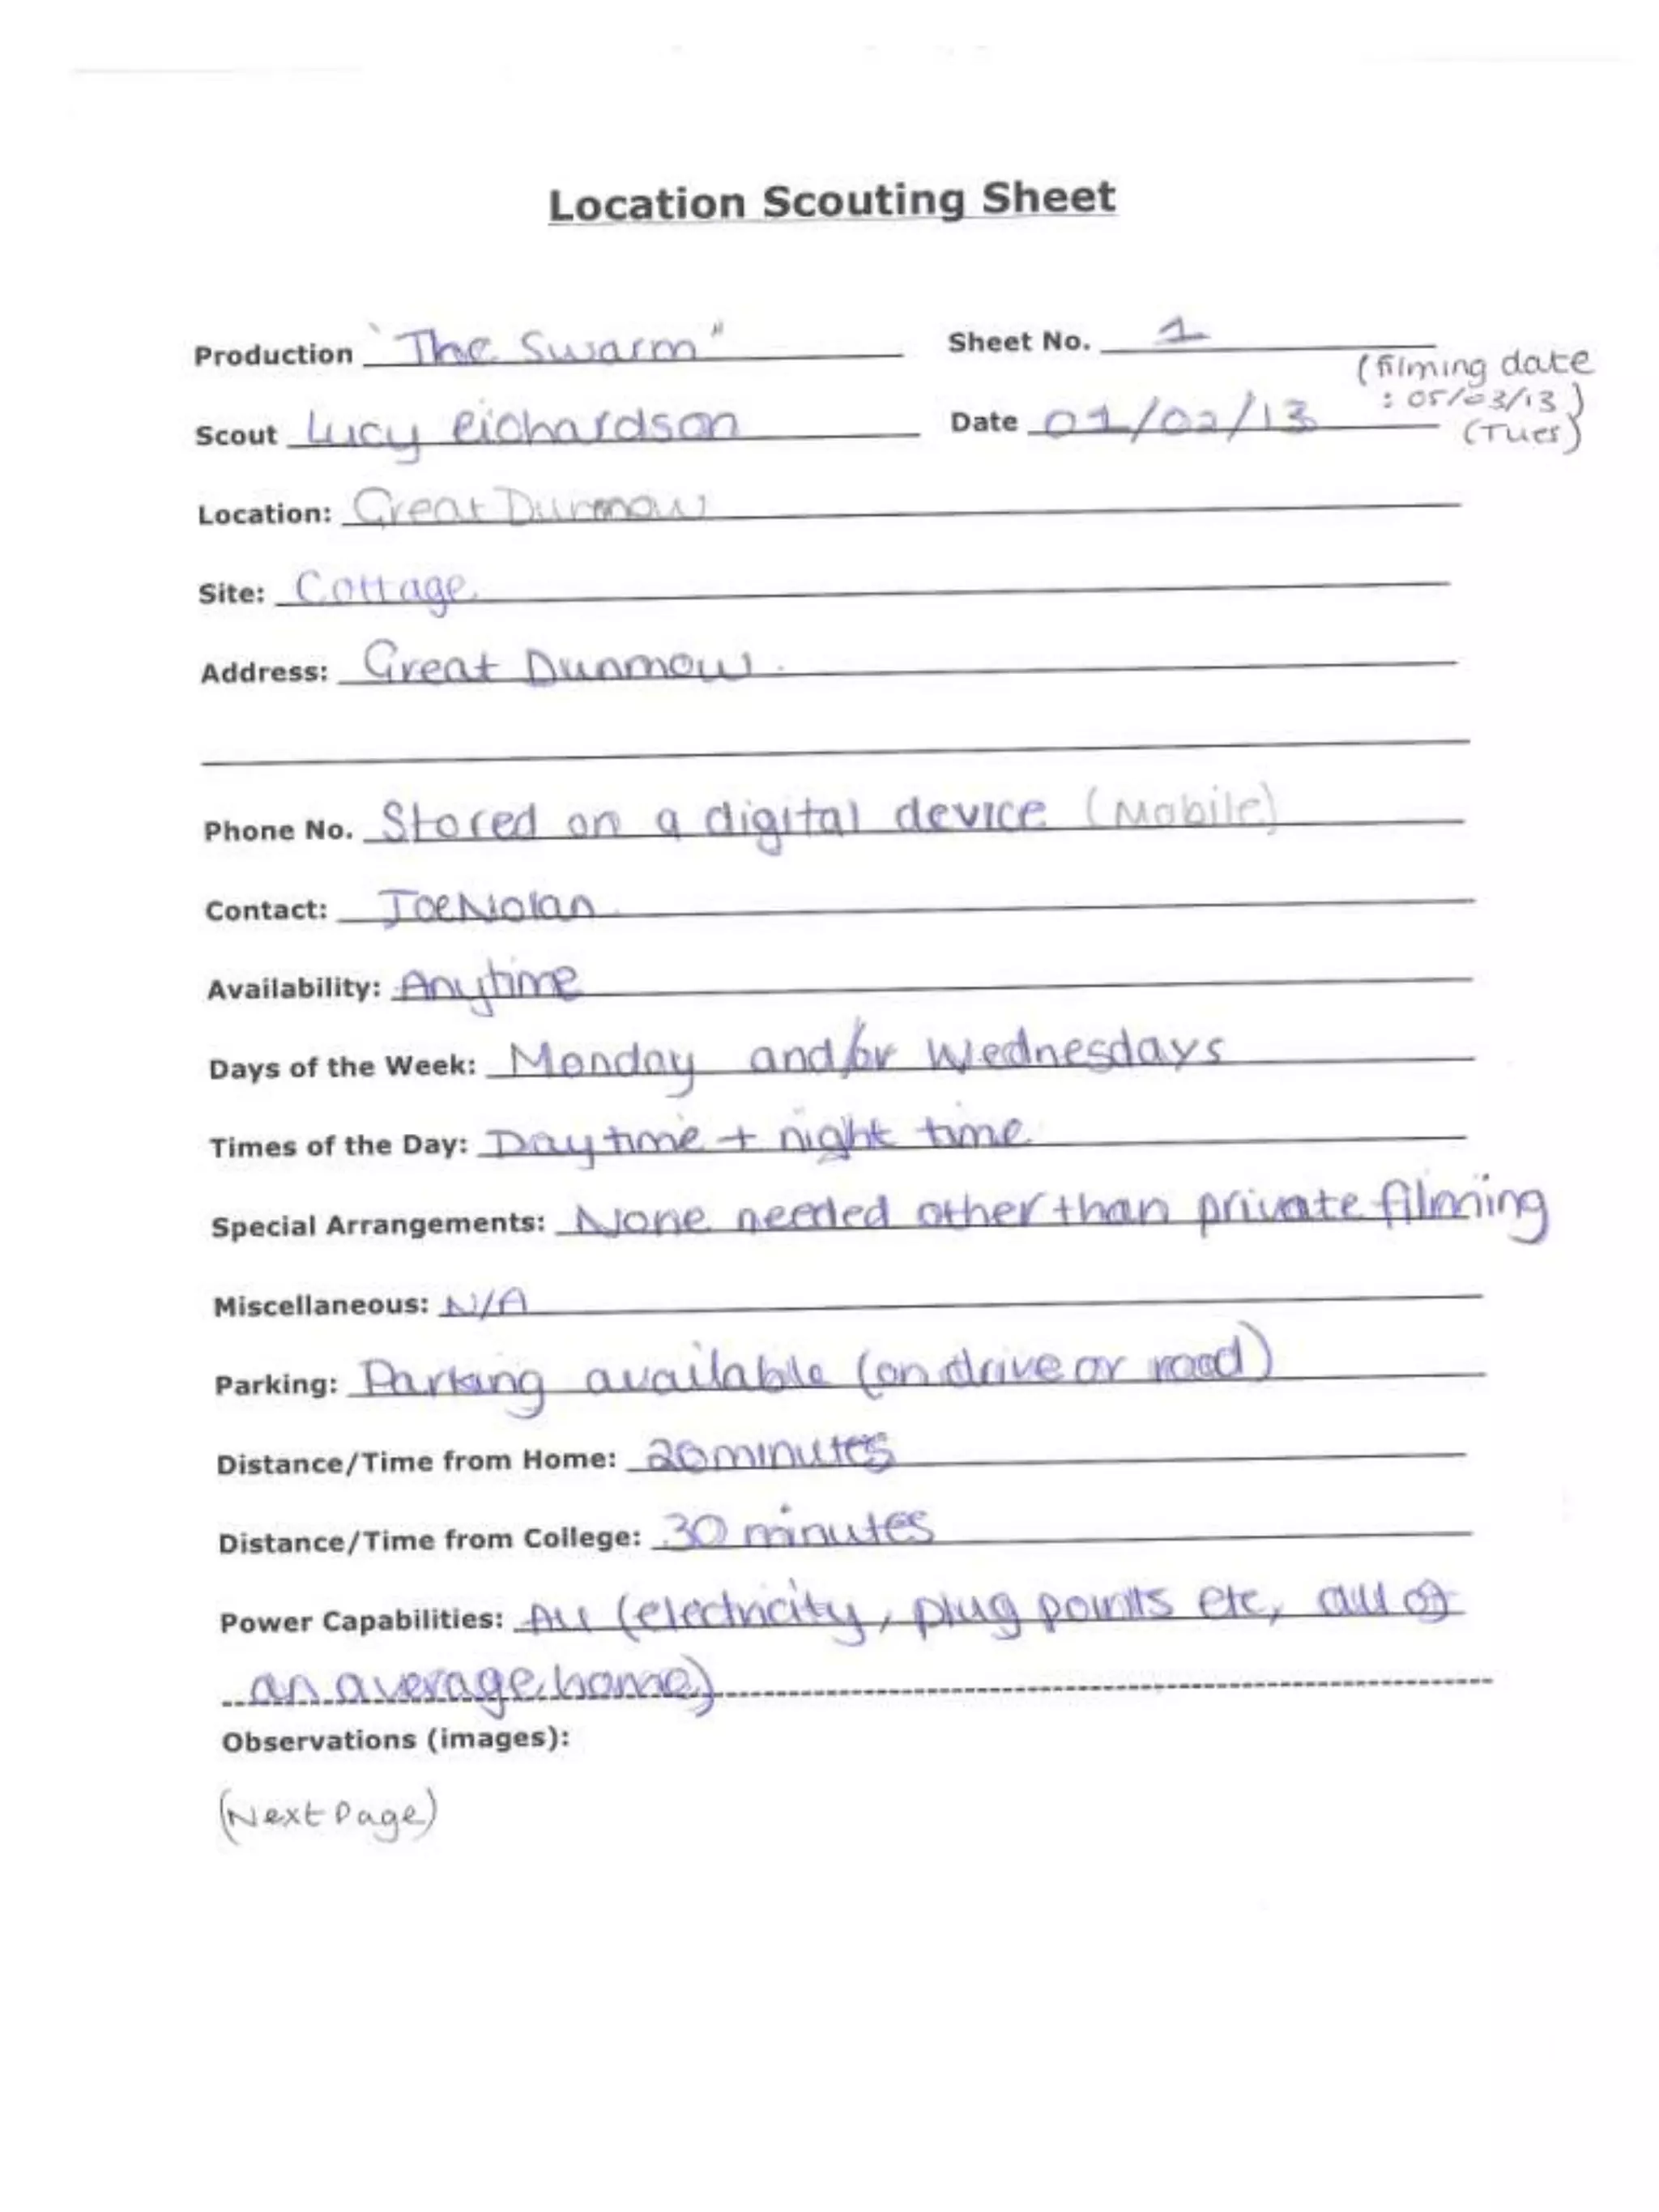 Location Scouting Sheet
Production "The Swarm" Sheet No. 1
(filming date
: 05/03/13)
(Tues)
Scout Lucy Richardson Date 01/02/13
Location: Great Dunmow
Site: Cottage
Address: Great Dunmow
Phone No. Stored on a digital device (Mobile)
Contact: Joe Nolan
Availability: Anytime
Days of the Week: Monday and/or Wednesdays
Times of the Day: Daytime + night time
Special Arrangements: None needed other than private filming
Miscellaneous: N/A
Parking: Parking available (on drive or road)
Distance/Time from Home: 20 minutes
Distance/Time from College: 30 minutes
Power Capabilities: All (electricity, plug points etc, all of
an average home)
Observations (images):
(Next Page)